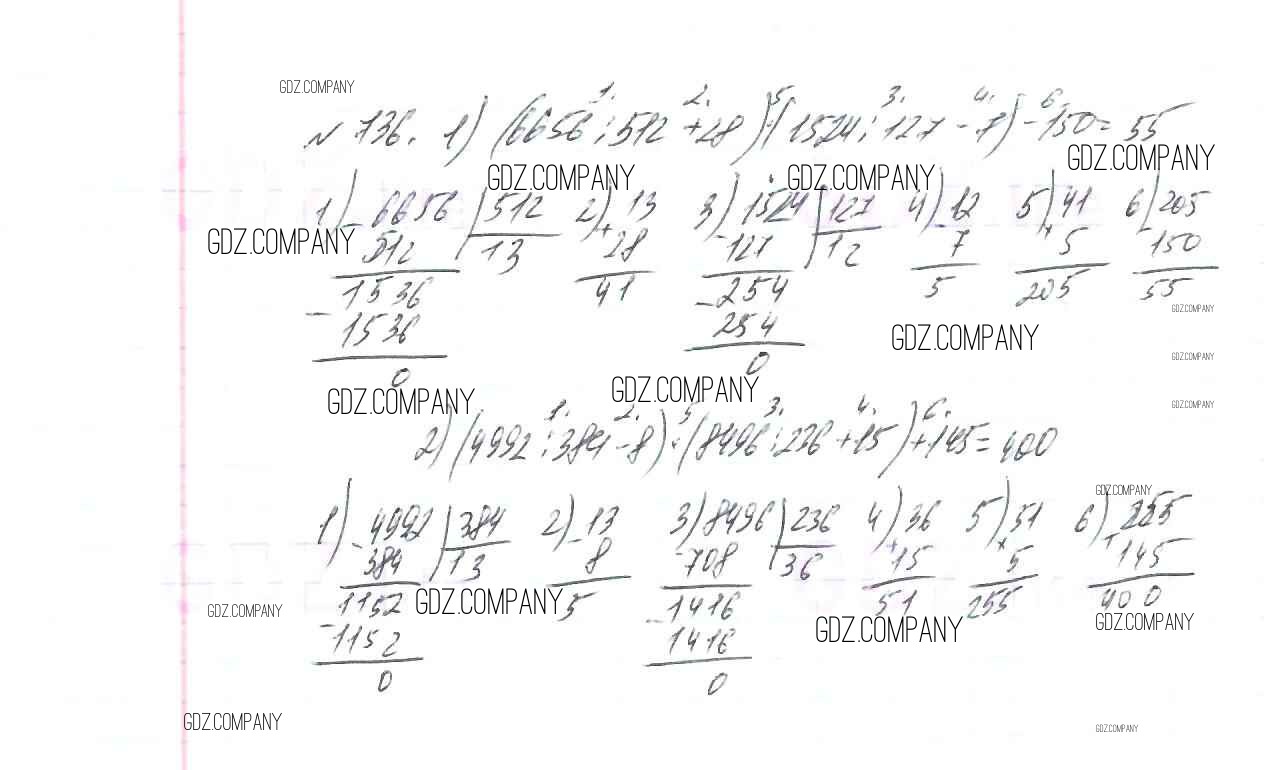 GDZ.COMPANY
1. 2. 5 3. 4. 6.
№ 736. 1) (6656 : 512 + 28) · (1524 : 127 - 7) - 150 = 55
GDZ.COMPANY GDZ.COMPANY GDZ.COMPANY
1) - 6656 | 512 2) + 13 3) - 1524 | 127 4) - 12 5) × 41 6) - 205
GDZ.COMPANY 512 13 28 127 12 7 5 150
1536 41 - 254 5 205 55
- 1536 254 GDZ.COMPANY GDZ.COMPANY
0 0 GDZ.COMPANY
GDZ.COMPANY GDZ.COMPANY GDZ.COMPANY
1. 2. 5 3. 4. 6.
2) (4992 : 384 - 8) · (8496 : 236 + 15) + 145 = 400
GDZ.COMPANY
1) - 4992 | 384 2) - 13 3) - 8496 | 236 4) + 36 5) × 51 6) + 255
384 13 8 708 36 15 5 145
1152 GDZ.COMPANY 5 - 1416 51 255 400
GDZ.COMPANY - 1152 1416 GDZ.COMPANY GDZ.COMPANY
0 0
GDZ.COMPANY GDZ.COMPANY